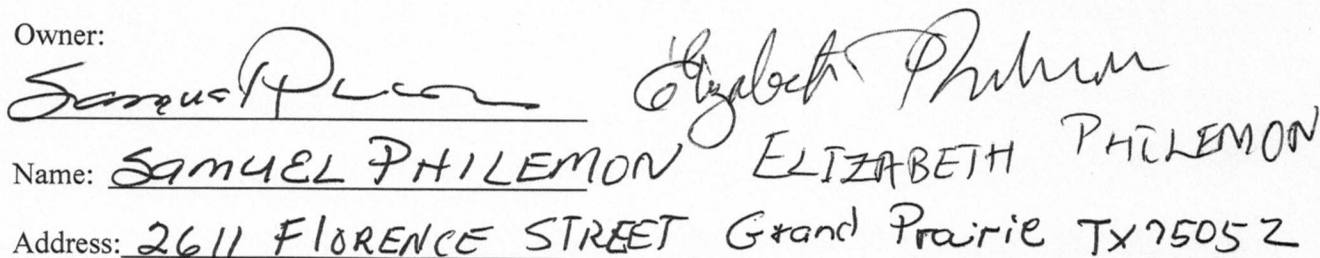 Owner:
Samuel Philemon Elizabeth Philemon
Name: SAMUEL PHILEMON ELIZABETH PHILEMON
Address: 2611 FLORENCE STREET Grand Prairie TX 75052